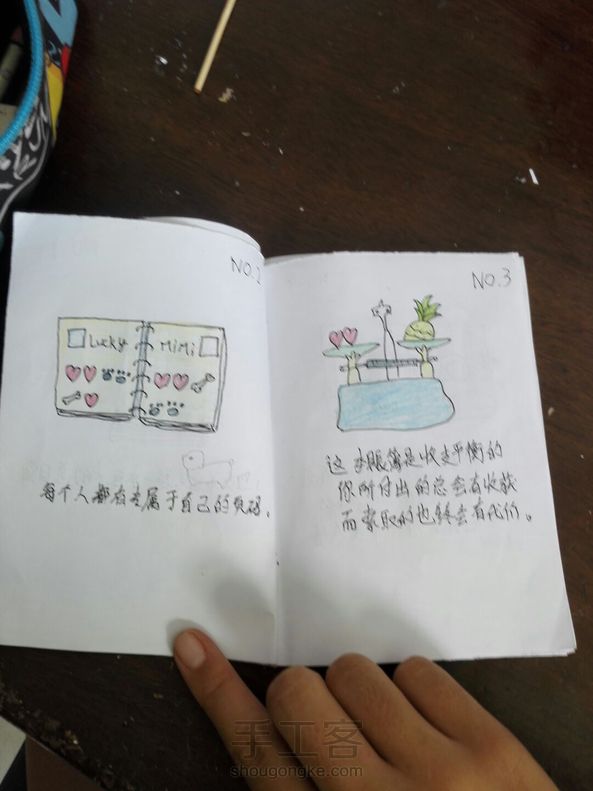 NO.2
Lucky
MiMi
每个人都有专属于自己的页码。
NO.3
这本账簿是收支平衡的
你所付出的总会有收获
而索取的也终会有代价。
手工客
shougongke.com